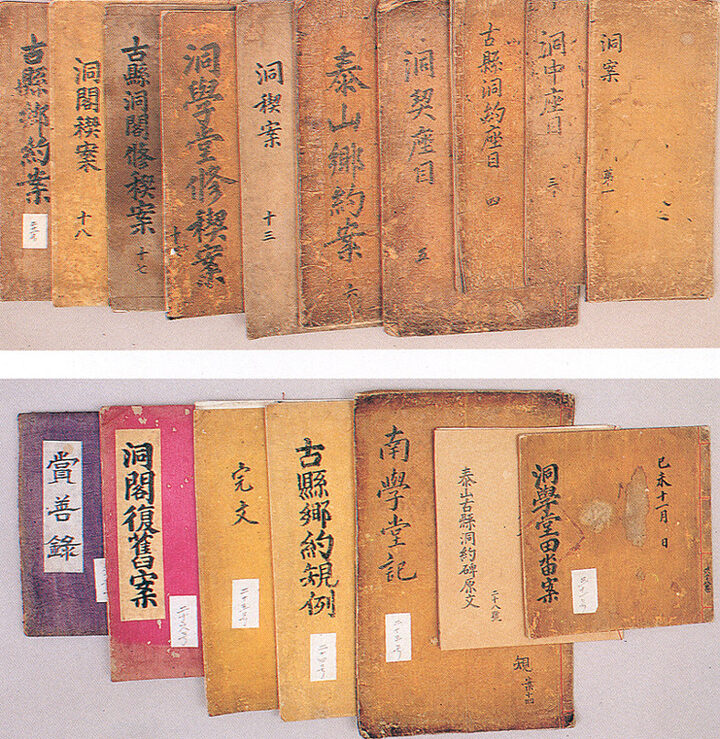 洞案
洞中座目
三
古縣洞約座目
四
洞契座目
五
泰山鄕約案
六
洞稧案
十三
洞學堂修稧案
古縣洞閣修稧案
十七
洞閣稧案
十八
古縣鄕約案
己未十一月 日
洞學堂田畓案
泰山古縣洞約碑原文
二十八號
南學堂記
古縣鄕約規例
二十四号
完文
洞閣復舊案
二十六号
賞善錄